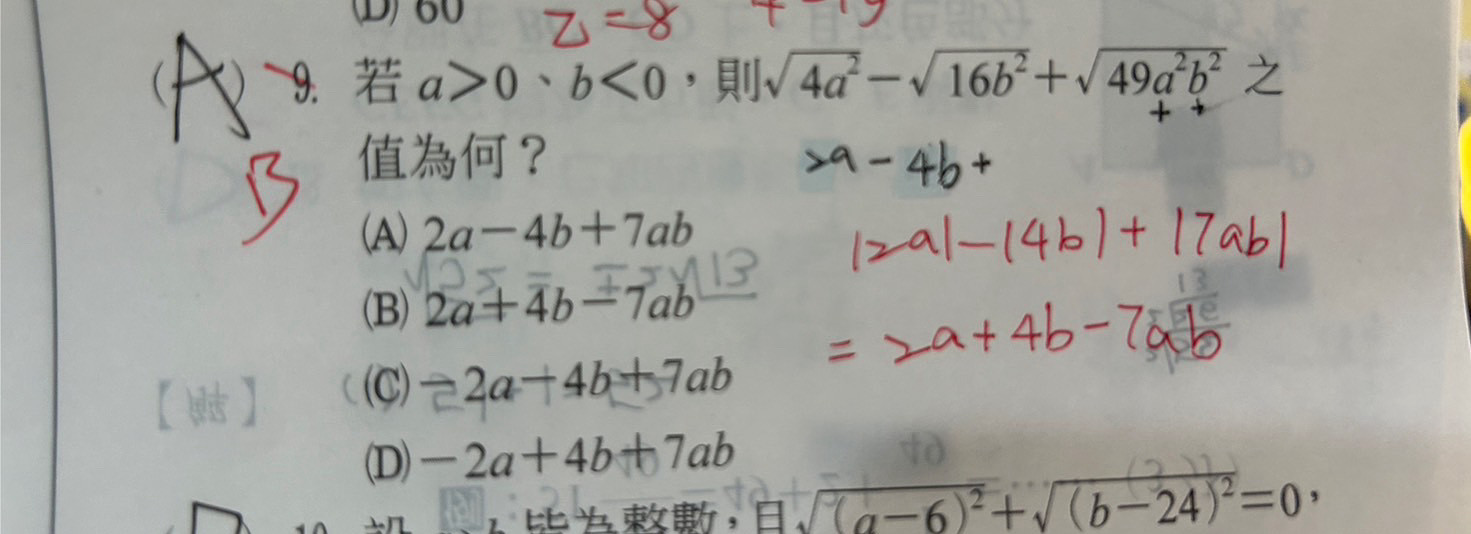 (D) 60 z=8
(A) 9. 若 a>0、b<0，則√4a² − √16b² + √49a²b² 之
+ +
值為何？ 2a - 4b +
B
(A) 2a−4b+7ab |2a|-|4b|+|7ab|
(B) 2a+4b−7ab = 2a+4b-7ab
(C) −2a−4b+7ab
(D) −2a+4b+7ab
10. 設 b 皆為整數，且√(a−6)² + √(b−24)² =0，